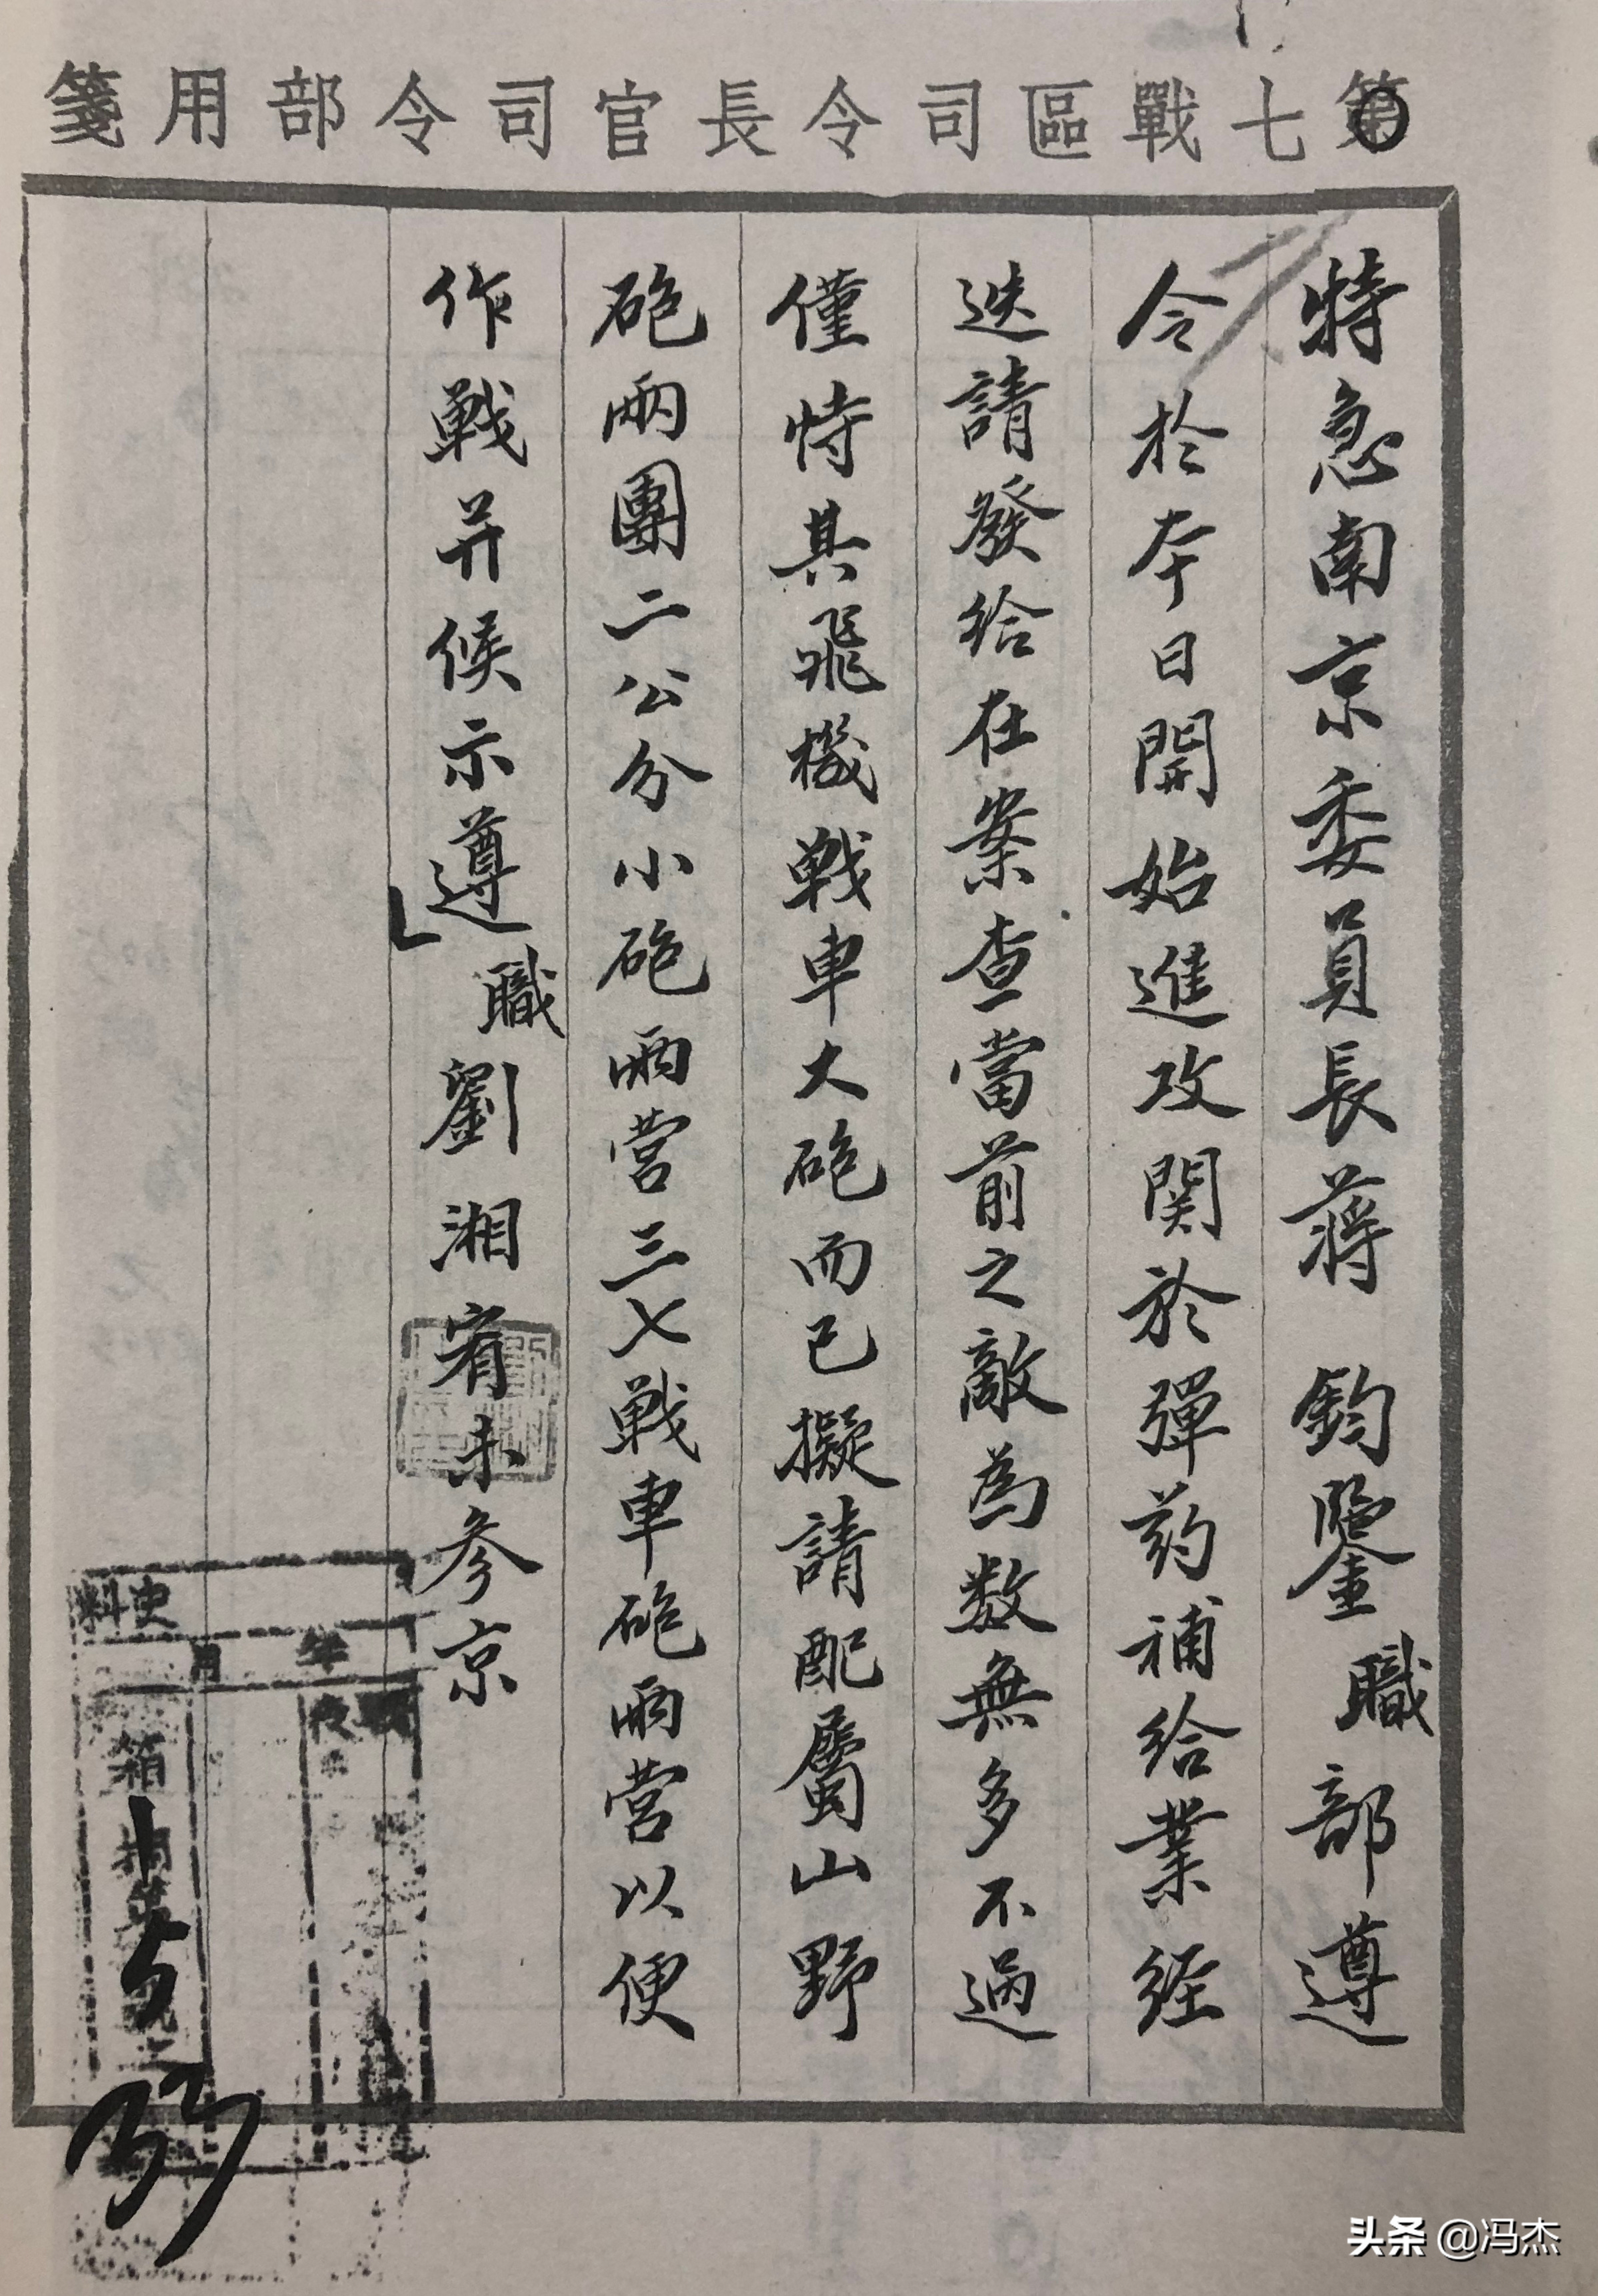 第七戰區司令長官司令部用箋
特急南京委員長蔣 鈞鑒職部遵
令於本日開始進攻関於彈药補给業経
迭請發给在案查當前之敵為数無多不過
僅恃其飛機戦車大砲而已擬請配屬山野
砲兩團二公分小砲兩营三七戦車砲兩营以便
作戦并候示遵職劉湘宥未参京
史料
年 月
箱
15
33
头条 @冯杰